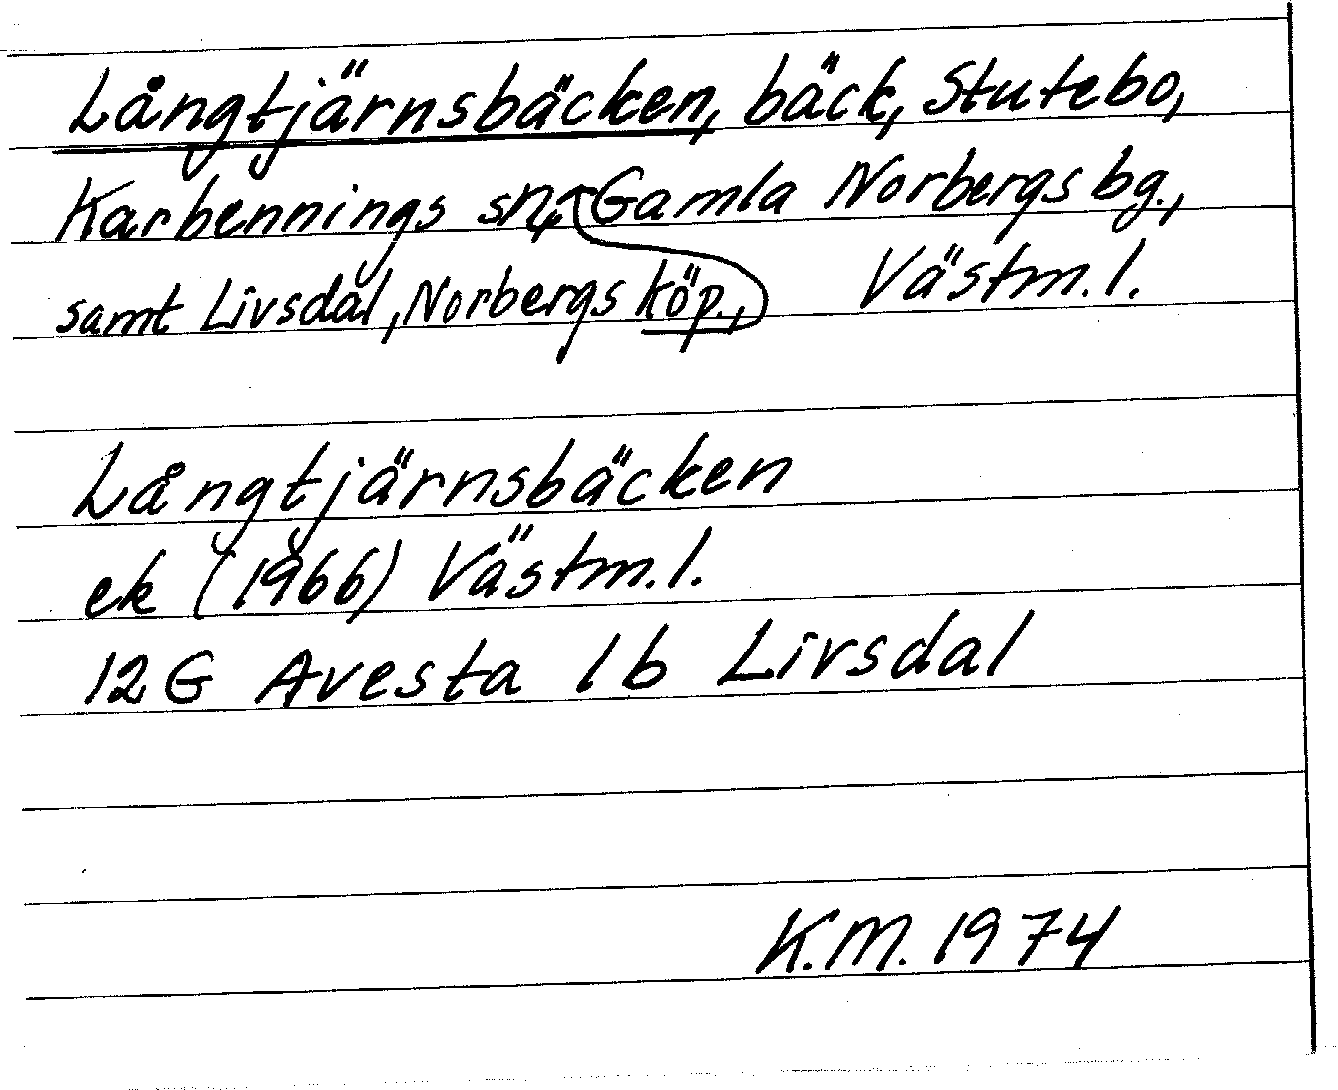 Långtjärnsbäcken, bäck, Stutebo,
Karbennings sn, Gamla Norbergs bg.,
samt Livsdal, Norbergs köp., Västm. l.
Långtjärnsbäcken
ek (1966) Västm. l.
12 G Avesta 1b Livsdal
K.M. 1974